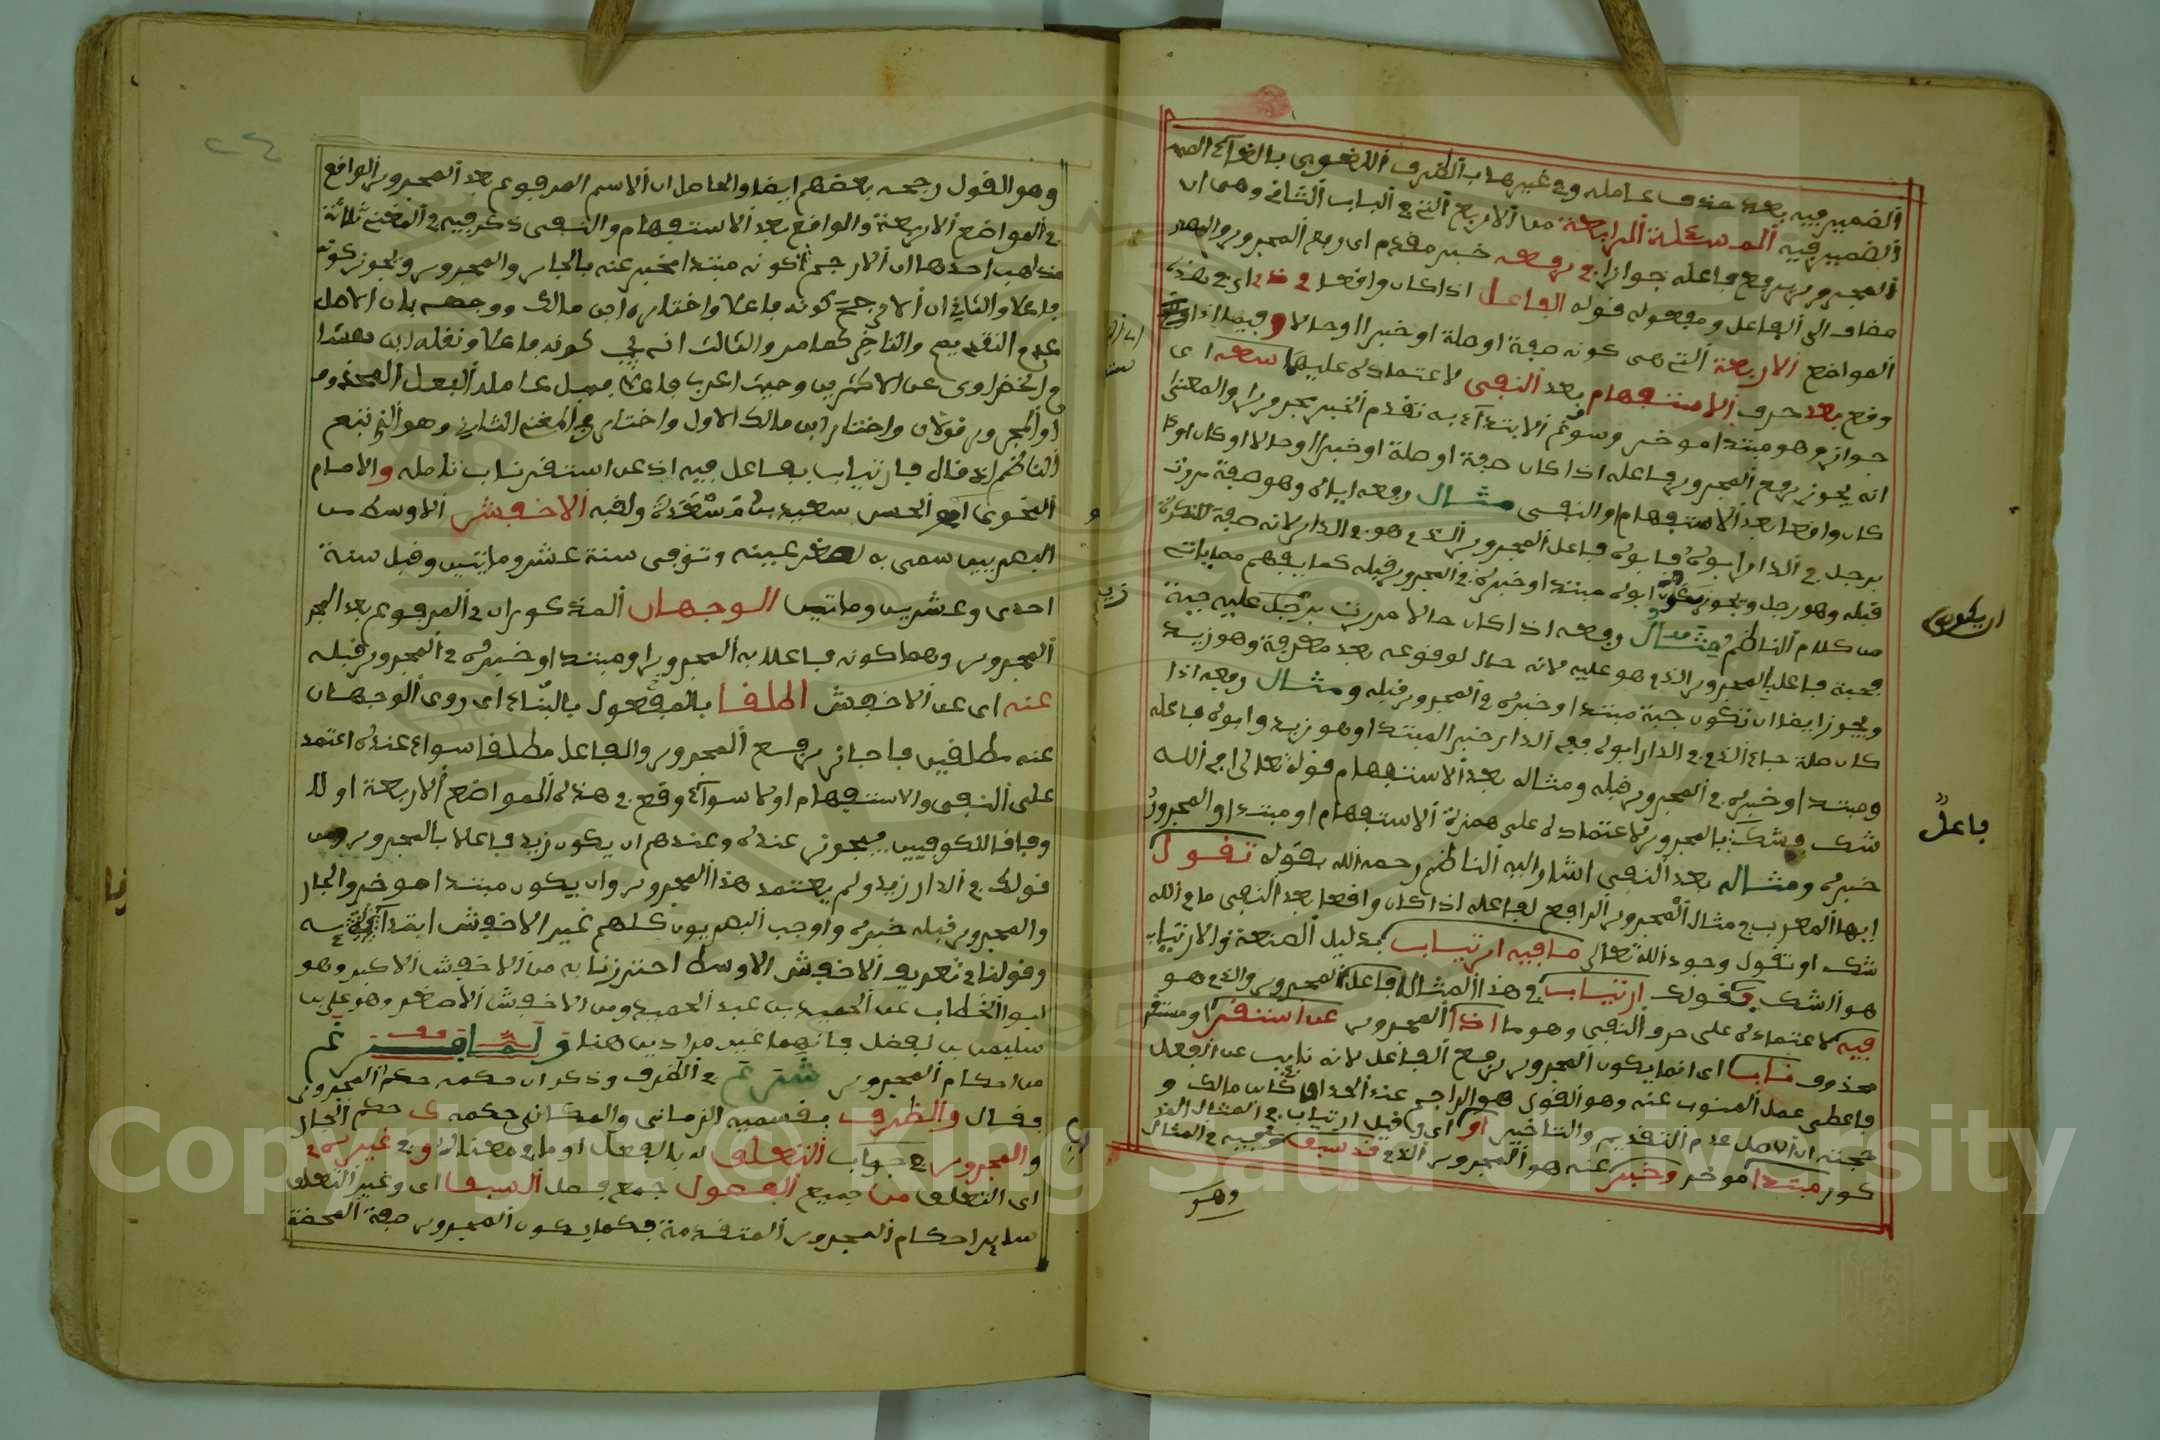 الضمير فيه بعد حذف عامله وفي غيرها بالظرف اللغوي بالغاء
الضمير فيه المسئلة الرابعة من الاربع التي في الباب الثاني وهي ان
المجرور يرفع فاعله جوازا في رفعه خبر مقدم اي رفع المجرور والمصدر
مضاف الى الفاعل ومفعوله قوله الفاعل اذا كان واقعا في ذي اي في هذه
المواضع الاربعة التي هي كونه صفة او صلة او خبرا او حالا وفيما اذا
وقع بعد حرف الاستفهام بعد النفي لاعتماده عليهما سعه اي
جوازه وهو مبتدا موخر وسوغ الابتداء به تقدم الخبر مجرورا والمعنى
انه يجوز رفع المجرور فاعله اذا كان صفة او صلة او خبرا او حالا او كان او
كان واقعا بعد الاستفهام او النفي مثال رفعه اياه وهو صفة مررت
برجل في الدار ابوه فابوه فاعل المجرور الذي هو في الدار لانه صفة للنكرة
قبله وهو رجل ويجوز كون ابوه مبتدا وخبره في المجرور قبله كما يفهم مما ياتي
من كلام الناظم ومثال رفعه اذا كان حالا مررت برجل عليه جبة
فجبة فاعل بالمجرور الذي هو عليه لانه حال لوقوعه بعد معرفة وهو زيد
ويجوز ايضا ان تكون جبة مبتدا وخبره في المجرور قبله ومثال رفعه اذا
كان صلة جاء الذي في الدار ابوه ففي الدار خبر المبتدا وهو زيد وابوه فاعله
ومبتدا وخبره في المجرور قبله ومثاله بعد الاستفهام قوله تعالى افي الله
شك فشك بالمجرور لاعتماده على همزة الاستفهام او مبتدا والمجرور
خبره ومثاله بعد النفي اشار اليه الناظم رحمه الله بقوله تقول
ايها المعرب في مثال المجرور الرافع لفاعله اذا كان واقعا بعد النفي ما في الله
شك او تقول وجود الله تعالى ما فيه ارتياب بدليل الصنعة والارتياب
هو الشك فقولك ارتياب في هذا المثال فاعل المجرور والذي هو
فيه لاعتماده على حرف النفي وهو ما اذا المجرور عن استقر او مستقر
محذوف ناب اي انما يكون المجرور يرفع الفاعل لانه نايب عن الفعل
فاعطي عمل المنوب عنه وهو القول هو الراجح عند الحذاق كابن مالك و
حجته ان الاصل عدم التقديم والتاخير او اي وقيل ارتياب في المثال الذي
كور مبتدا موخر وخبر عنه هو المجرور الذي قد سبق وفيه في المثال
وهو
ان يكون
فاعل
وهو القول رجحه بعضهم ايضا والحاصل ان الاسم المرفوع بعد المجرور الواقع
في المواضع الاربعة والواقع بعد الاستفهام والنفي ذكر فيه في المغني ثلاثة
مذاهب احدها ان الارجح كونه مبتدا مخبر عنه بالجار والمجرور ويجوز كونه
فاعلا والثاني ان الارجح كونه فاعلا واختاره ابن مالك ووجهه بان الاصل
عدم التقديم والتاخير كما مر والثالث انه يجب كونه فاعلا ونقله ابن هشام
الخضراوي عن الاكثرين وحيث اعرب فاعلا فهل عامله الفعل المحذوف
او المجرور قولان واختار ابن مالك الاول واختار في المغني الثاني وهو الذي تبع
الناظم اذ قال فارتياب فاعل فيه اذ عن استقر ناب تامله والامام
النحوي ابو الحسن سعيد بن مسعدة ولقبه الاخفش الاوسط من
البصريين سمي به لصغر عينيه وتوفي سنة عشر ومايتين وقيل سنة
احدى وعشرين ومايتين الوجهان المذكوران في المرفوع بعد الجر
المجرور وهما كونه فاعلا به المجرور او مبتدا وخبره في المجرور قبله
عنه اي عن الاخفش اطلقا بالمفعول بالبناء اي روي الوجهان
عنه مطلقين فاجاز رفع المجرور والفاعل مطلقا سواء عنده اعتمد
على النفي والاستفهام او لا سواء وقع في هذه المواضع الاربعة او لا
وفاقا للكوفيين فيجوز عنده وعندهم ان يكون زيد فاعلا بالمجرور من
قولك في الدار زيد ولم يعتمد هذا المجرور وان يكون مبتدا موخر والجار
والمجرور قبله خبره واوجب البصريون كلهم غير الاخفش ابتدائيته
وقولنا في تعريف الاخفش الاوسط احترزنا به من الاخفش الاكبر وهو
ابو الخطاب عبد الحميد بن عبد المجيد ومن الاخفش الاصغر وهو علي بن
سليمن بن الفضل فانهما غير مرادين هنا ولما فرغ
من احكام المجرور شرع في الظرف وذكر ان حكمه حكم المجرور
فقال والظرف بقسميه الزماني والمكاني حكمه ك حكم الجار
والمجرور في جواب التعلق له بالفعل او ما في معناه وفي غيره
اي التعلق من جميع الفصول جمع فصل السبقا اي وغير التعلق
ساير احكام المجرور المتقدمة فكما يكون المجرور صفة المحضة
Copyright © King Saud University